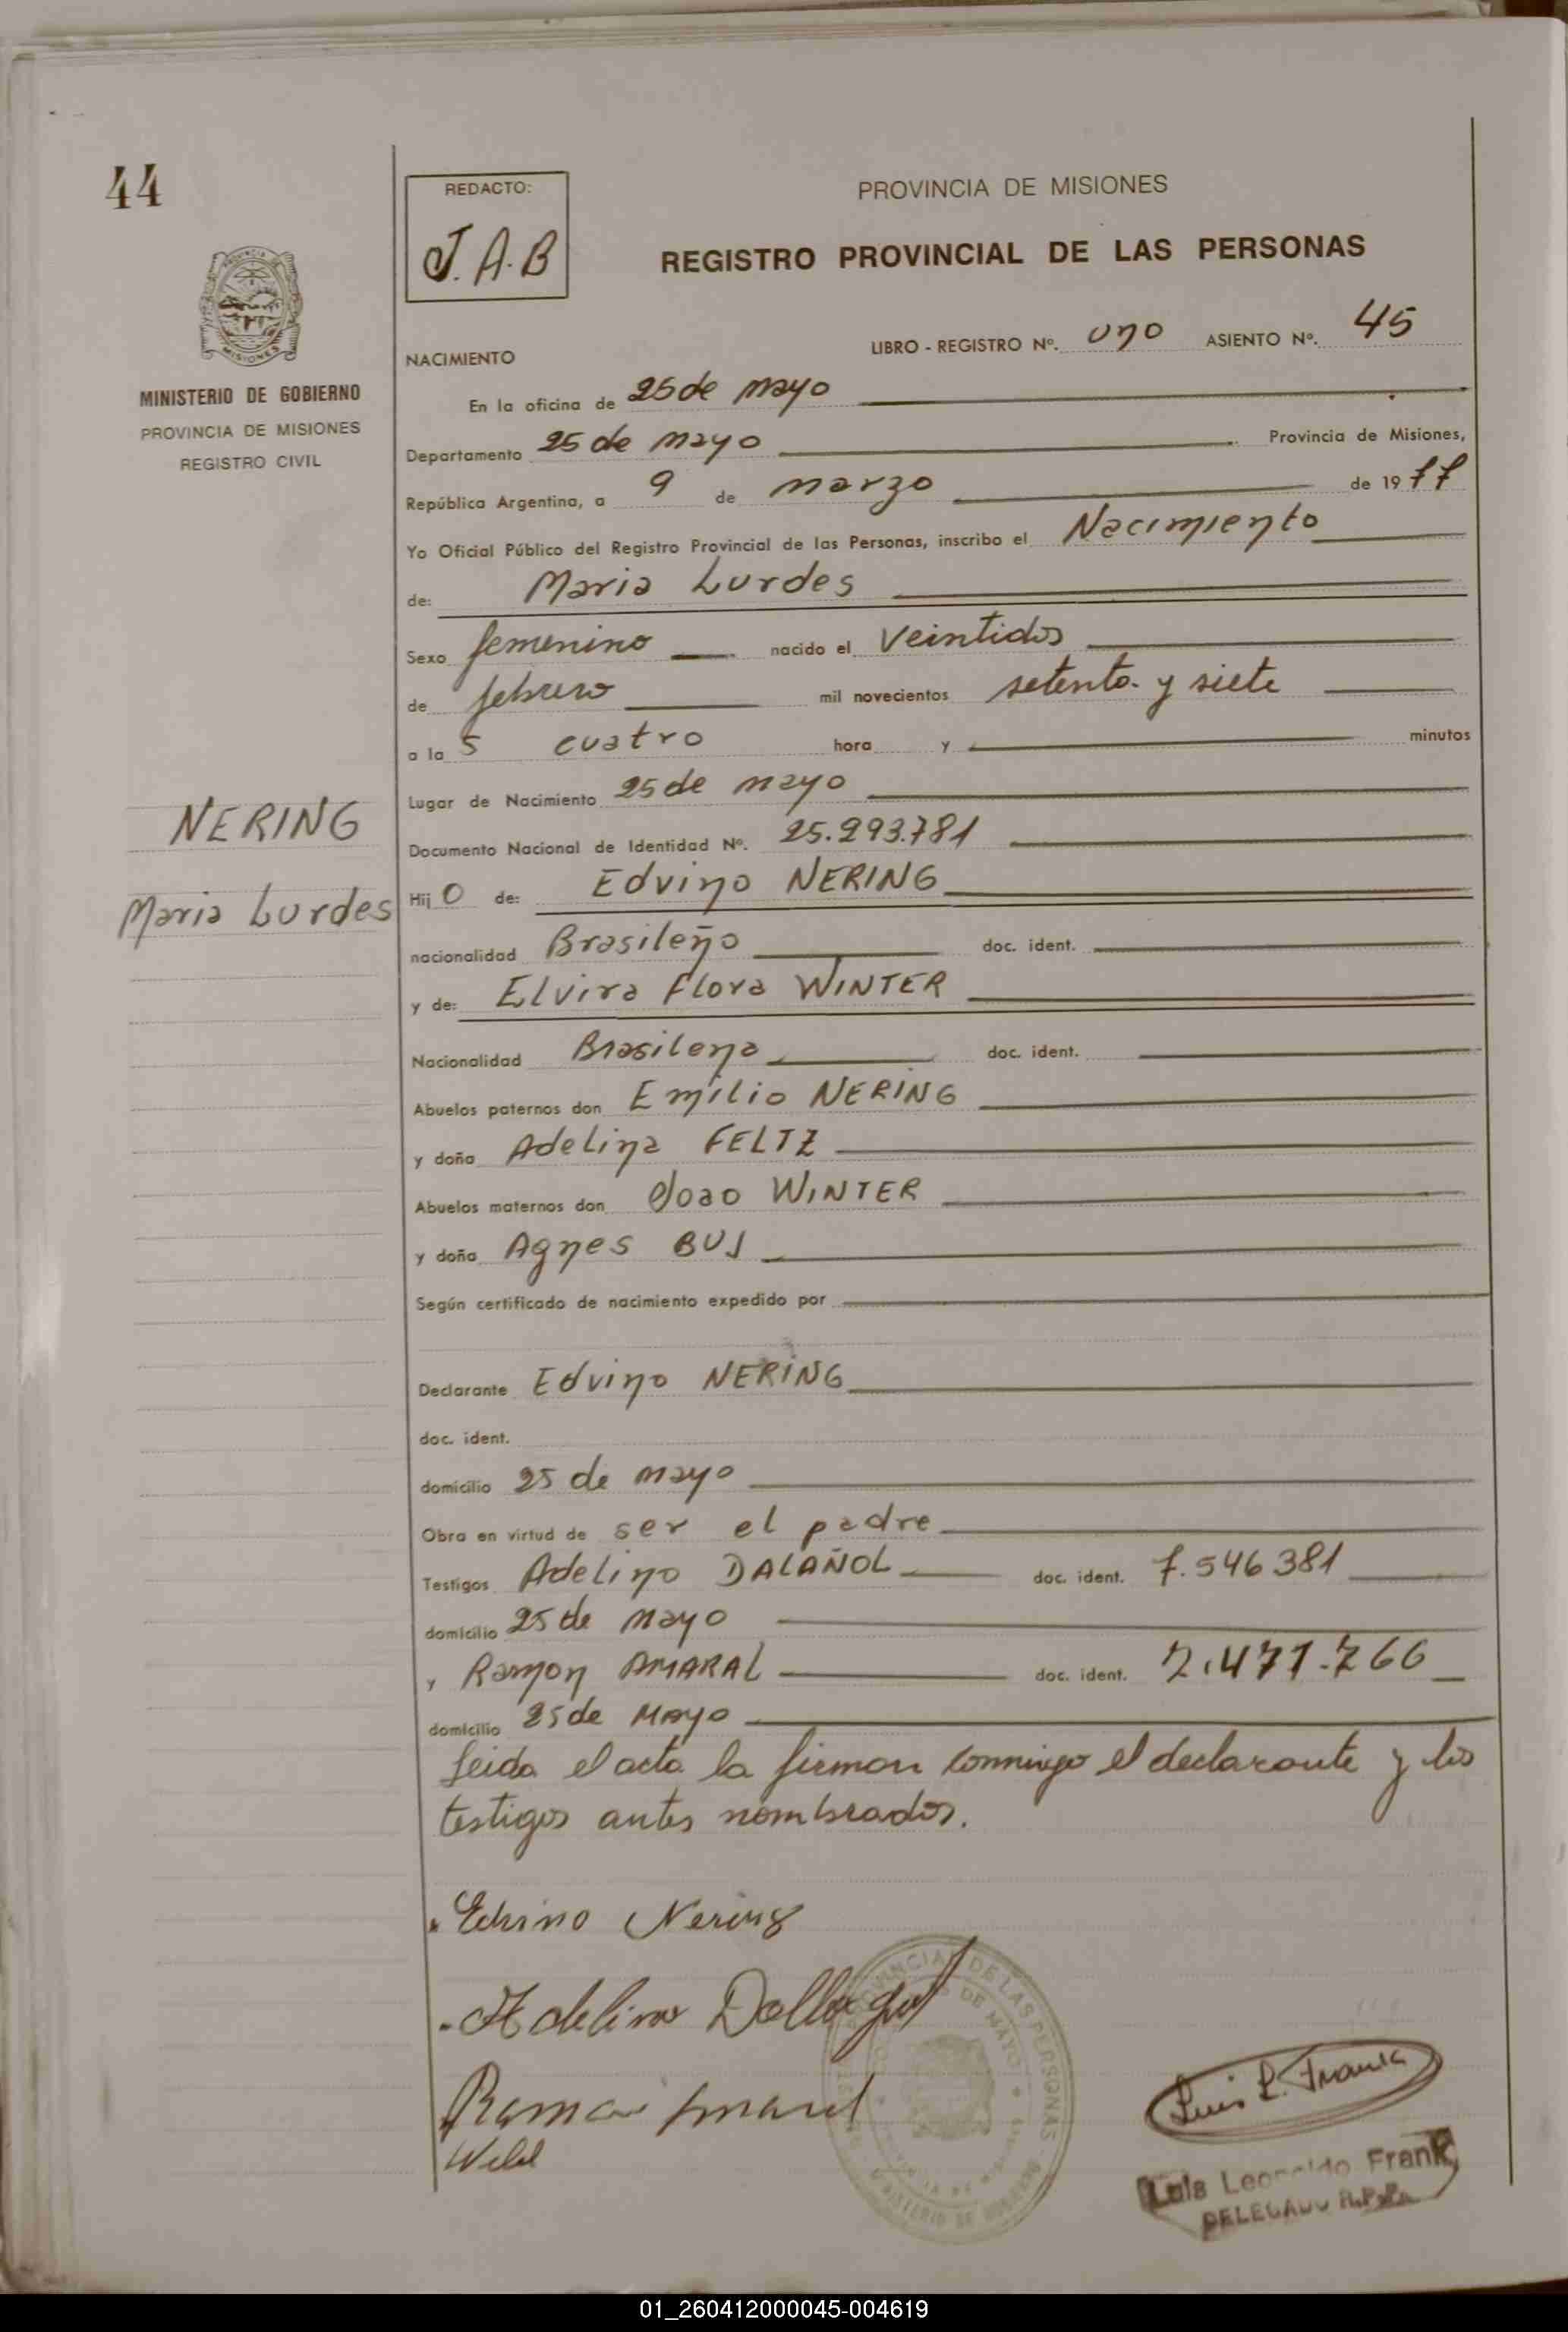 44
REDACTO:
J.A.B
PROVINCIA DE MISIONES
REGISTRO PROVINCIAL DE LAS PERSONAS
MISIONES
MINISTERIO DE GOBIERNO
PROVINCIA DE MISIONES
REGISTRO CIVIL
NACIMIENTO
LIBRO - REGISTRO Nº. uno ASIENTO Nº. 45
En la oficina de 25 de mayo
Departamento 25 de mayo Provincia de Misiones,
República Argentina, a 9 de marzo de 1977
Yo Oficial Público del Registro Provincial de las Personas, inscribo el Nacimiento
de: Maria Lurdes
Sexo femenino nacido el veintidos
de febrero mil novecientos setenta y siete
a la s cuatro hora y minutos
Lugar de Nacimiento 25 de mayo
NERING
Maria Lurdes
Documento Nacional de Identidad Nº. 25.293.781
Hij o de: Edvino NERING
nacionalidad Brasileño doc. ident.
y de: Elvira Flora WINTER
Nacionalidad Brasilena doc. ident.
Abuelos paternos don Emilio NERING
y doña Adelina FELTZ
Abuelos maternos don Joao WINTER
y doña Agnes BUS
Según certificado de nacimiento expedido por
Declarante Edvino NERING
doc. ident.
domicilio 25 de mayo
Obra en virtud de ser el padre
Testigos Adelino DALAÑOL doc. ident. 7.546381
domicilio 25 de mayo
y Ramon AMARAL doc. ident. 2.471.766
domicilio 25 de Mayo
Leida el acta la firman conmigo el declarante y los
testigos antes nombrados.
Edvino Nering
Adelino
Luis L. Frank
Luis Leopoldo Frank
DELEGADO R.P.P.
01_260412000045-004619